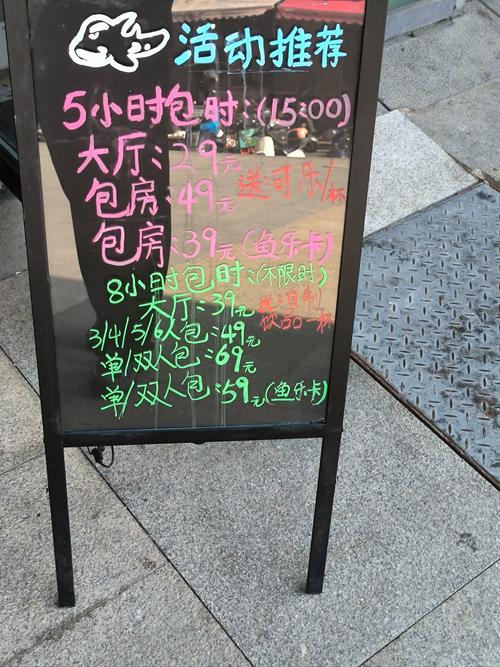 活动推荐
5小时包时:(15:00)
大厅:29元
包房:49元
送可乐/杯
包房:39元(鱼乐卡)
8小时包时:(不限时)
大厅:39元
送自制
饮品一杯
3/4/5/6人包:49元
单/双人包:69元
单/双人包:59元(鱼乐卡)